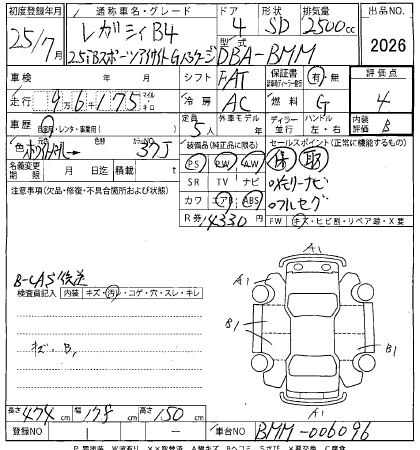 初度登録年月 通称車名・グレード ドア 形状 排気量 出品NO.
25年/7月 レガシィB4 4 SD 2500cc 2026
2.5iBスポーツアイサイトGパッケージ 型式 DBA-BMM
車検 年 月 シフト FAT 保証書 有・無 評価点
走行 96175 マイル キロ 冷房 AC 燃料 G 4
車歴 自家用・レンタ・事業用( ) 定員 5人 外車モデル 年 ディーラー 並行 ハンドル 左・右 内装評価 B
色 ホワイトパール 色替 カラーNO. 37J 装備品(純正品に限る) セールスポイント(正常に機能するもの)
名義変更期限 月 日迄 積載 t PS PW AW 保 取
注意事項(欠品・修復・不具合箇所および状態) SR TV ナビ oメモリーナビ
カワ エアB ABS oフルセグ
R券 4330円 FW キズ・ヒビ割・リペア跡・X要
B-CAS後送
検査員記入 内装 キズ・汚れ・コゲ・穴・スレ・キレ
キズ・B1
A1
A1
B1
B1
A1
長さ 474cm 幅 178cm 高さ 150cm
登録NO 車台NO BMM-006096